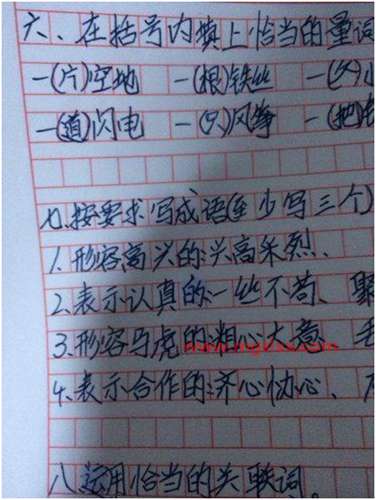 六、在括号内填上恰当的量词
一(片)空地 一(根)铁丝 一(
一(道)闪电 一(只)风筝 一(把
七、按要求写成语(至少写三个)
1.形容高兴的:兴高采烈、
2.表示认真的:一丝不苟、聚
3.形容马虎的:粗心大意、毛
4.表示合作的:齐心协心、
八、运用恰当的关联词